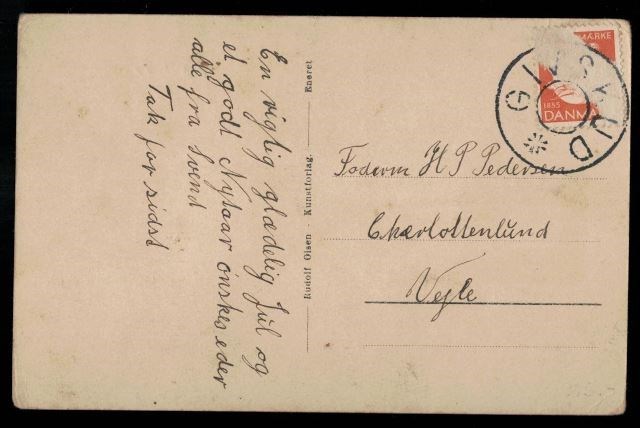 En rigtig glædelig Jul og
et godt Nytaar ønskes eder
alle fra Svend
Tak for sidst
Rudolf Olsen · Kunstforlag. Eneret
1835
DANMA
MÆRKE
GIVSKUD
Foderm H P Pedersen
Charlottenlund
Vejle